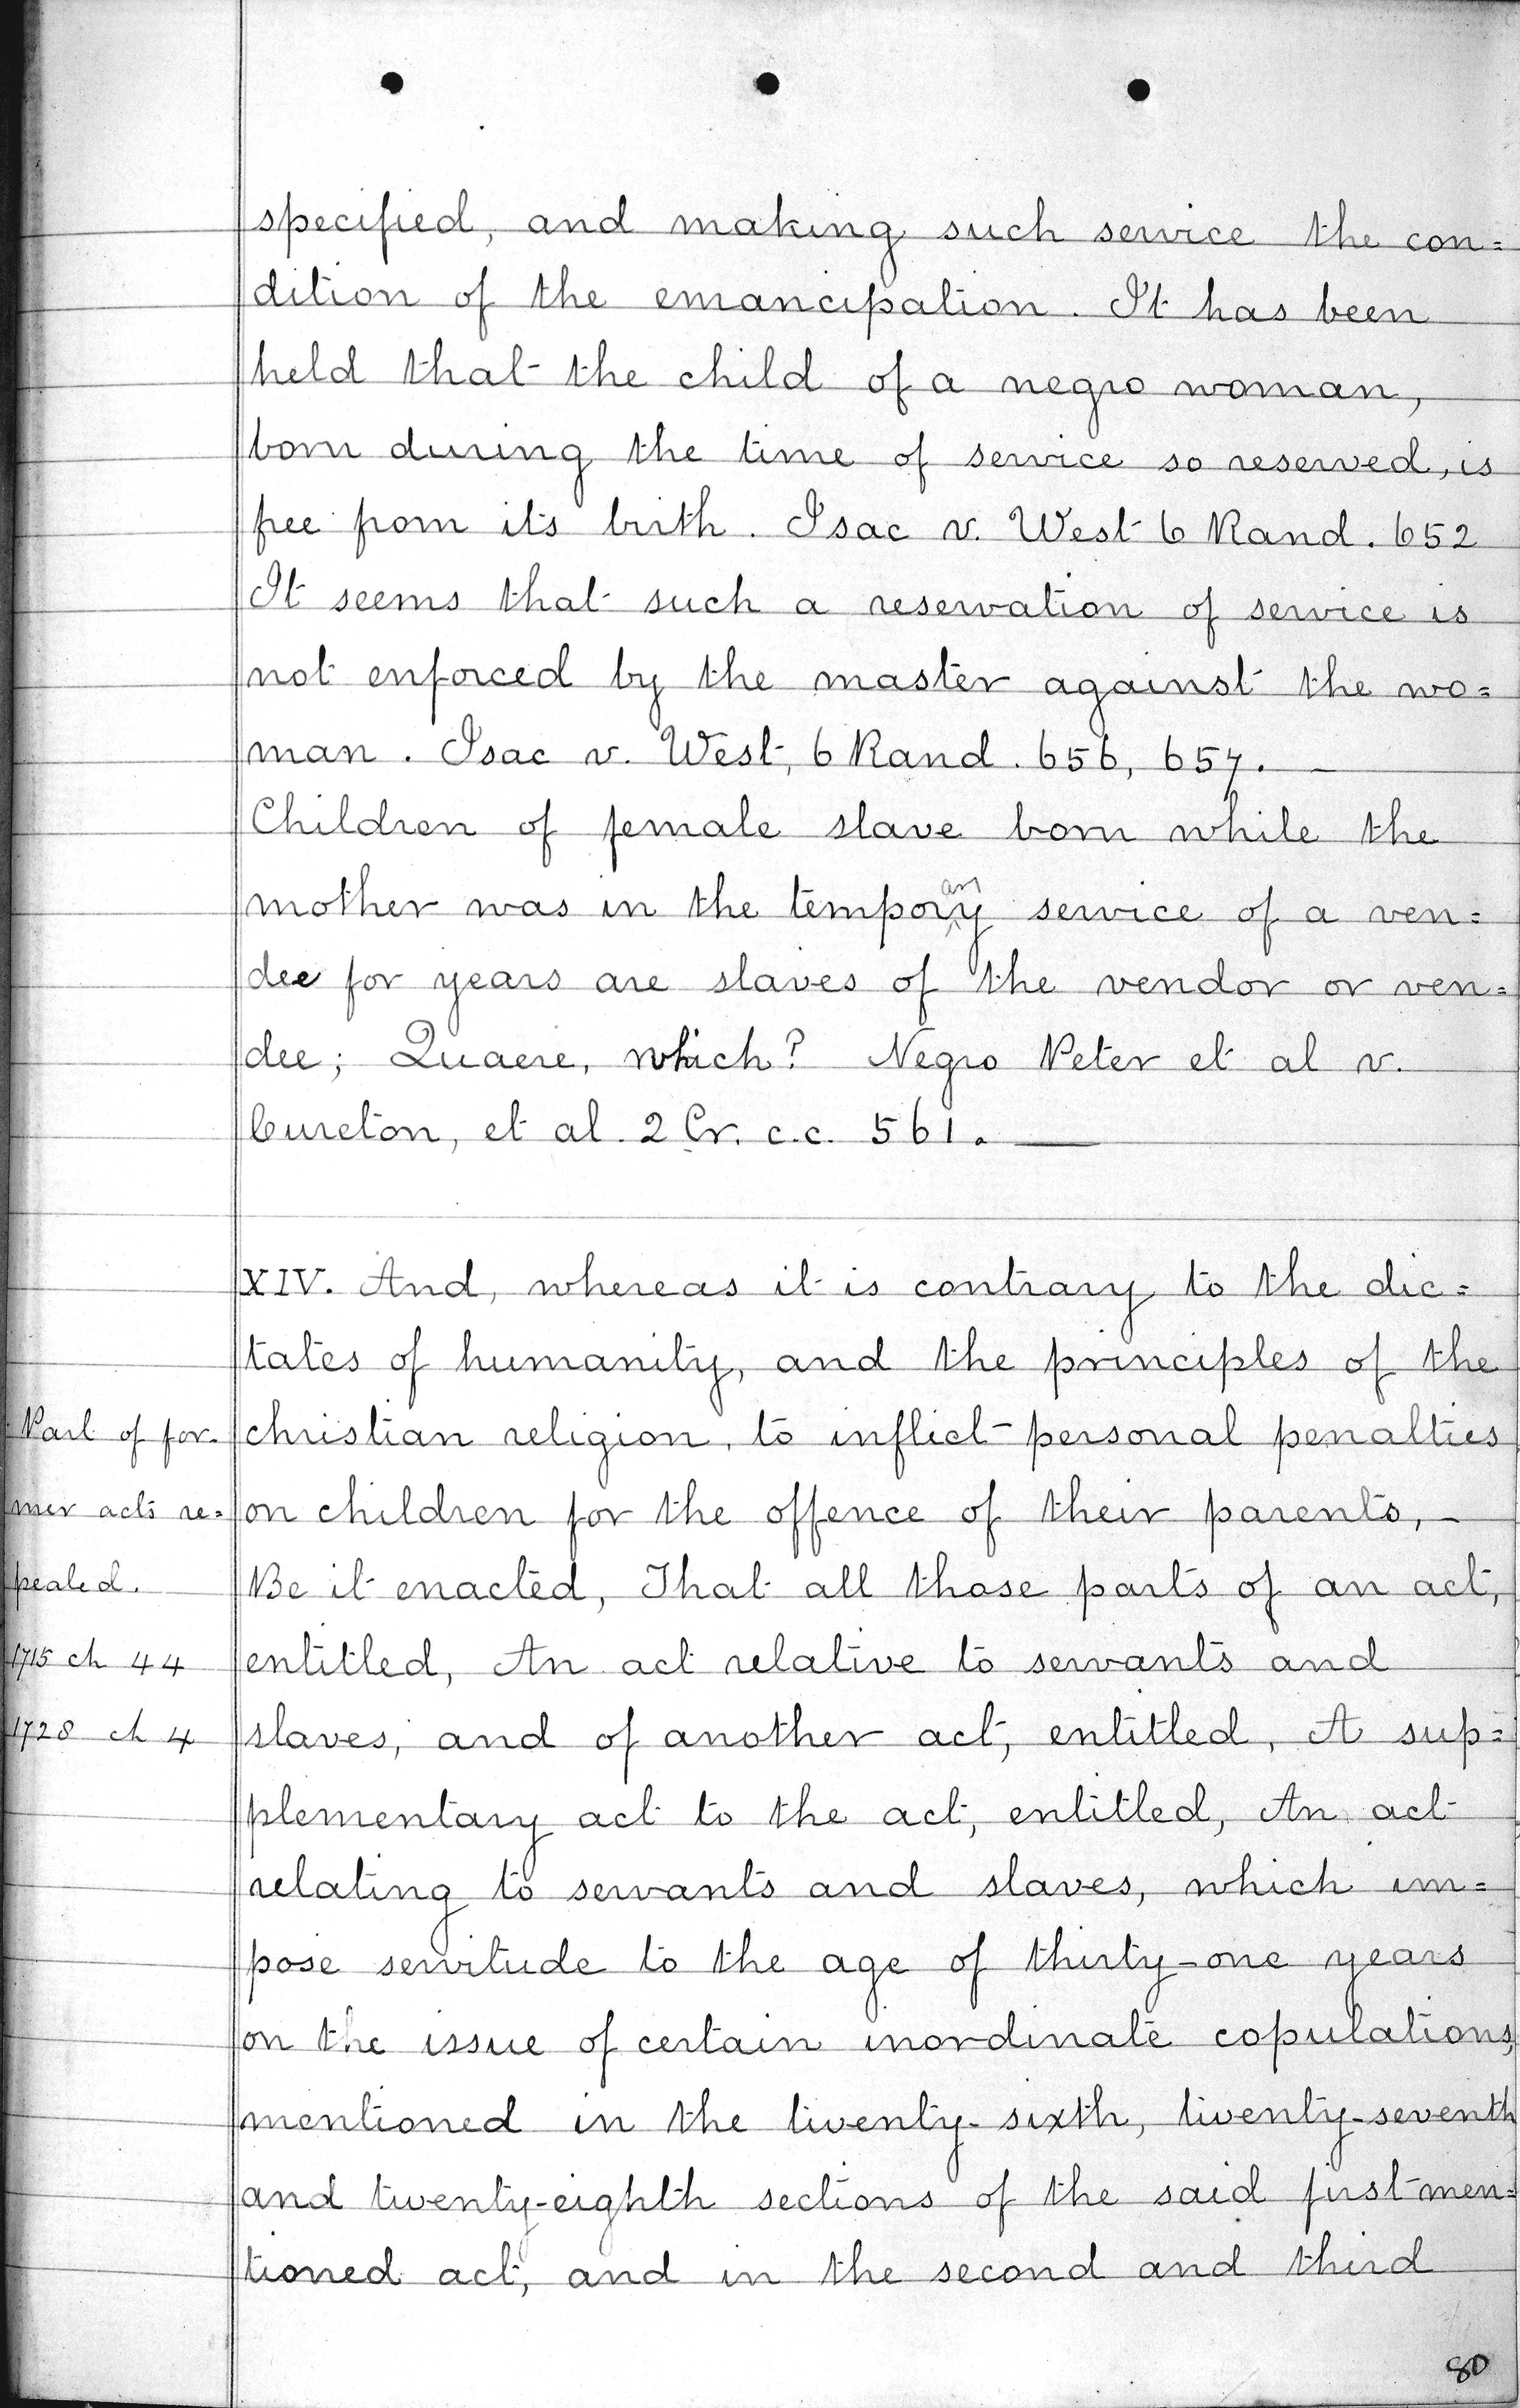 specified, and making such service the con=
dition of the emancipation. It has been
held that the child of a negro woman,
born during the time of service so reserved, is
free from its birth. Isac v. West 6 Rand. 652
It seems that such a reservation of service is
not enforced by the master against the wo=
man. Isac v. West, 6 Rand. 656, 657. -
Children of female slave born while the
mother was in the temporary service of a ven=
dee for years are slaves of the vendor or ven=
dee; Quaere, which? Negro Peter et al v.
Cureton, et al. 2 Cr. c.c. 561. —
XIV. And, whereas it is contrary to the dic=
tates of humanity, and the principles of the
Part of for-
christian religion, to inflict personal penalties
mer acts re=
on children for the offence of their parents, -
pealed.
Be it enacted, That all those parts of an act,
1715 ch 44
entitled, An act relative to servants and
1728 ch 4
slaves, and of another act, entitled, A sup=
plementary act to the act, entitled, An act
relating to servants and slaves, which im=
pose servitude to the age of thirty-one years
on the issue of certain inordinate copulations,
mentioned in the twenty-sixth, twenty-seventh
and twenty-eighth sections of the said first men=
tioned act, and in the second and third
80